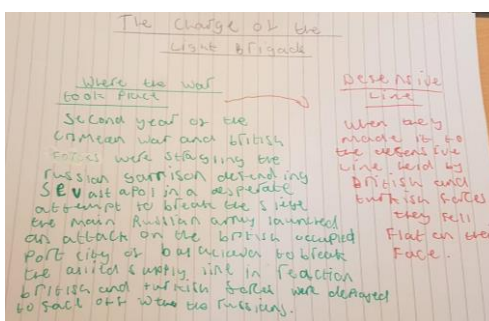 The Charge of the
Light Brigade
Where the war
took place
Second year of the
Crimean war and british
forces were stragling the
russian garrison defending
SEVastapol in a desperate
attempt to break the siege
the main Russian army launched
an attack on the british occupied
Port city of to break
the allied supply line in reaction
british and turkish forces were deployed
to face off with the russians.
Defensive
Line
when they
made it to
the defensive
line held by
British and
turkish forces
they fell
Flat on the
Face.